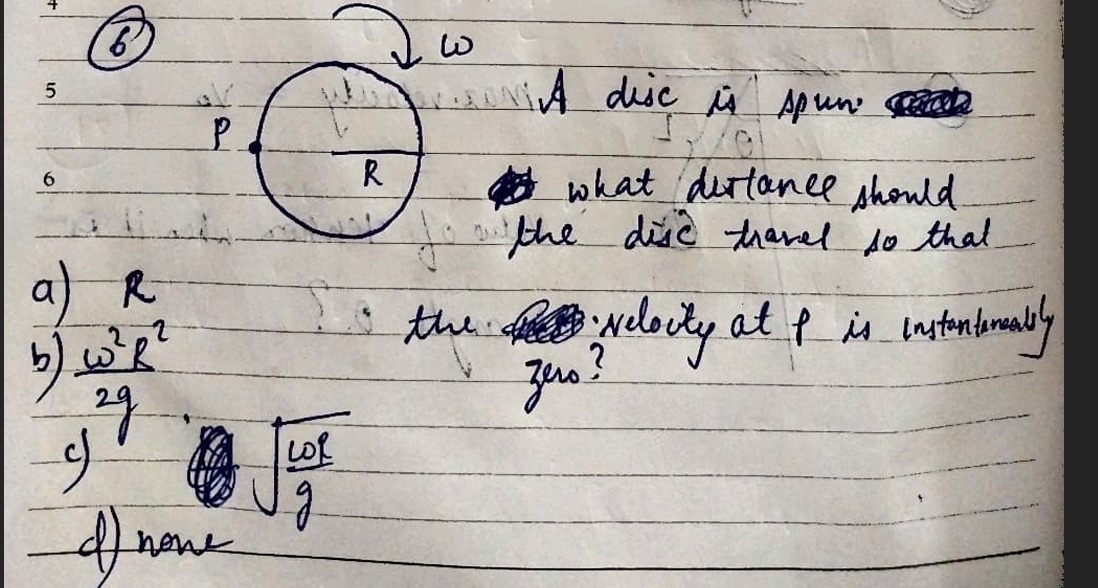 4
6
ω
5
A disc is spun
P
R
6
what distance should
the disc travel so that
a) R
the velocity at P is instantaneously
zero?
b) ω²R²
2g
c) √ωR
g
d) none